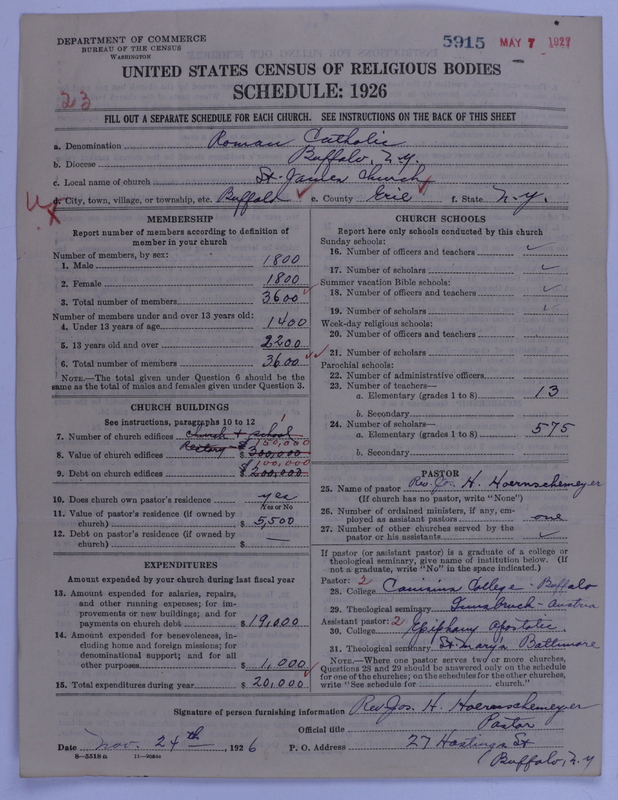 DEPARTMENT OF COMMERCE
BUREAU OF THE CENSUS
WASHINGTON
5915 MAY 7 1927
UNITED STATES CENSUS OF RELIGIOUS BODIES
SCHEDULE: 1926
23
FILL OUT A SEPARATE SCHEDULE FOR EACH CHURCH. SEE INSTRUCTIONS ON THE BACK OF THIS SHEET
a. Denomination Roman Catholic
b. Diocese Buffalo, N.Y.
c. Local name of church St. James Church
d. City, town, village, or township, etc. Buffalo e. County Erie f. State N.Y.
MEMBERSHIP
Report number of members according to definition of
member in your church
Number of members, by sex:
1. Male 1800
2. Female 1800
3. Total number of members 3600
Number of members under and over 13 years old:
4. Under 13 years of age 1400
5. 13 years old and over 2200
6. Total number of members 3600
NOTE.—The total given under Question 6 should be the
same as the total of males and females given under Question 3.
CHURCH BUILDINGS
See instructions, paragraphs 10 to 12
7. Number of church edifices church + school 1
Rectory $150,000
8. Value of church edifices $300,000
$100,000
9. Debt on church edifices $200,000
10. Does church own pastor's residence yes
Yes or No
11. Value of pastor's residence (if owned by
church) $5,500
12. Debt on pastor's residence (if owned by
church) $ —
EXPENDITURES
Amount expended by your church during last fiscal year
13. Amount expended for salaries, repairs,
and other running expenses; for im-
provements or new buildings; and for
payments on church debt $19,000
14. Amount expended for benevolences, in-
cluding home and foreign missions; for
denominational support; and for all
other purposes $1,000
15. Total expenditures during year $20,000
CHURCH SCHOOLS
Report here only schools conducted by this church
Sunday schools:
16. Number of officers and teachers
17. Number of scholars
Summer vacation Bible schools:
18. Number of officers and teachers
19. Number of scholars
Week-day religious schools:
20. Number of officers and teachers
21. Number of scholars
Parochial schools:
22. Number of administrative officers
23. Number of teachers—
a. Elementary (grades 1 to 8) 13
b. Secondary
24. Number of scholars—
a. Elementary (grades 1 to 8) 575
b. Secondary
PASTOR
25. Name of pastor Rev. Jos. H. Hoernschemeyer
(If church has no pastor, write "None")
26. Number of ordained ministers, if any, em-
ployed as assistant pastors one
27. Number of other churches served by the
pastor or his assistants
If pastor (or assistant pastor) is a graduate of a college or
theological seminary, give name of institution below. (If
not a graduate, write "No" in the space indicated.)
Pastor: 2
28. College Canisius College - Buffalo
29. Theological seminary Innsbruch - Austria
Assistant pastor: 2
30. College Epiphany Apostolic
31. Theological seminary St Mary's Baltimore
NOTE.—Where one pastor serves two or more churches,
Questions 28 and 29 should be answered only on the schedule
for one of the churches; on the schedules for the other churches,
write "See schedule for church."
Signature of person furnishing information Rev Jos. H. Hoernschemeyer
Official title Pastor
Date Nov. 24th, 1926 P. O. Address 27 Hastings St
Buffalo, N.Y
8—5518a 11—20860